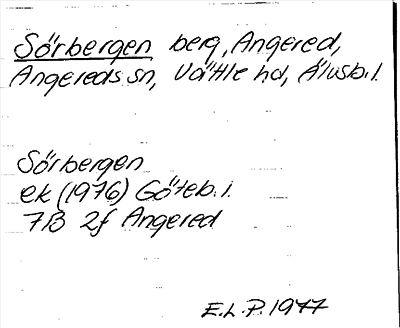 Sörbergen berg, Angered,
Angereds sn, Vättle hd, Älvsb.l.
Sörbergen
ek (1976) Göteb. l.
7B 2f Angered
E.L.P. 1977